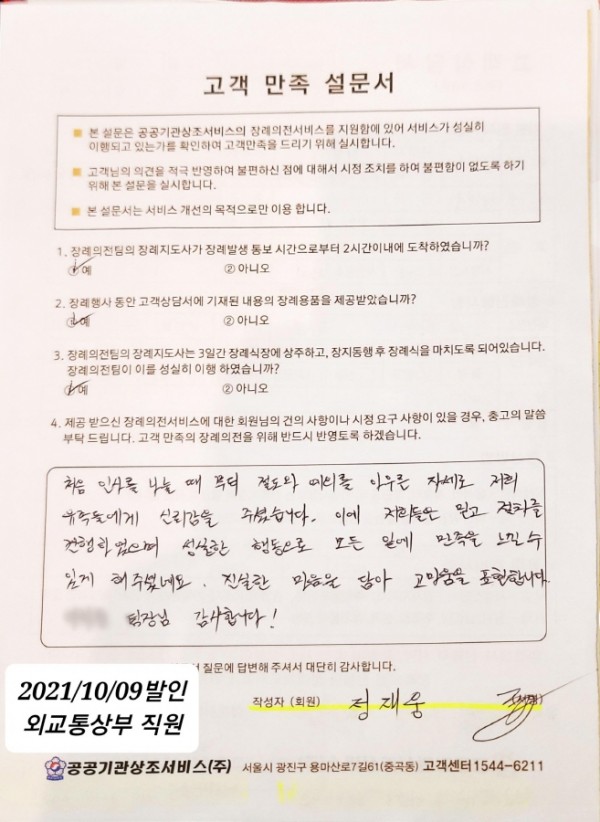 고객 만족 설문서
■ 본 설문은 공공기관상조서비스의 장례의전서비스를 지원함에 있어 서비스가 성실히
이행되고 있는가를 확인하여 고객만족을 드리기 위해 실시합니다.
■ 고객님의 의견을 적극 반영하여 불편하신 점에 대해서 시정 조치를 하여 불편함이 없도록 하기
위해 본 설문을 실시합니다.
■ 본 설문서는 서비스 개선의 목적으로만 이용 합니다.
1. 장례의전팀의 장례지도사가 장례발생 통보 시간으로부터 2시간이내에 도착하였습니까?
① 예 ② 아니오
2. 장례행사 동안 고객상담서에 기재된 내용의 장례용품을 제공받았습니까?
① 예 ② 아니오
3. 장례의전팀의 장례지도사는 3일간 장례식장에 상주하고, 장지동행 후 장례식을 마치도록 되어있습니다.
장례의전팀이 이를 성실히 이행 하였습니까?
① 예 ② 아니오
4. 제공 받으신 장례의전서비스에 대한 회원님의 건의 사항이나 시정 요구 사항이 있을 경우, 충고의 말씀
부탁 드립니다. 고객 만족의 장례의전을 위해 반드시 반영토록 하겠습니다.
처음 인사를 나눌 때 부터 절도와 예의를 아우른 자세로 저희
유족들에게 신뢰감을 주셨습니다. 이에 저희들은 믿고 절차를
진행하였으며 성실한 행동으로 모든 일에 만족을 느낄 수
있게 해주셨네요. 진실한 마음을 담아 고마움을 표현합니다.
팀장님 감사합니다!
질문에 답변해 주셔서 대단히 감사합니다.
2021/10/09발인
외교통상부 직원
작성자 (회원) 정재웅
공공기관상조서비스(주) 서울시 광진구 용마산로7길61(중곡동) 고객센터1544-6211